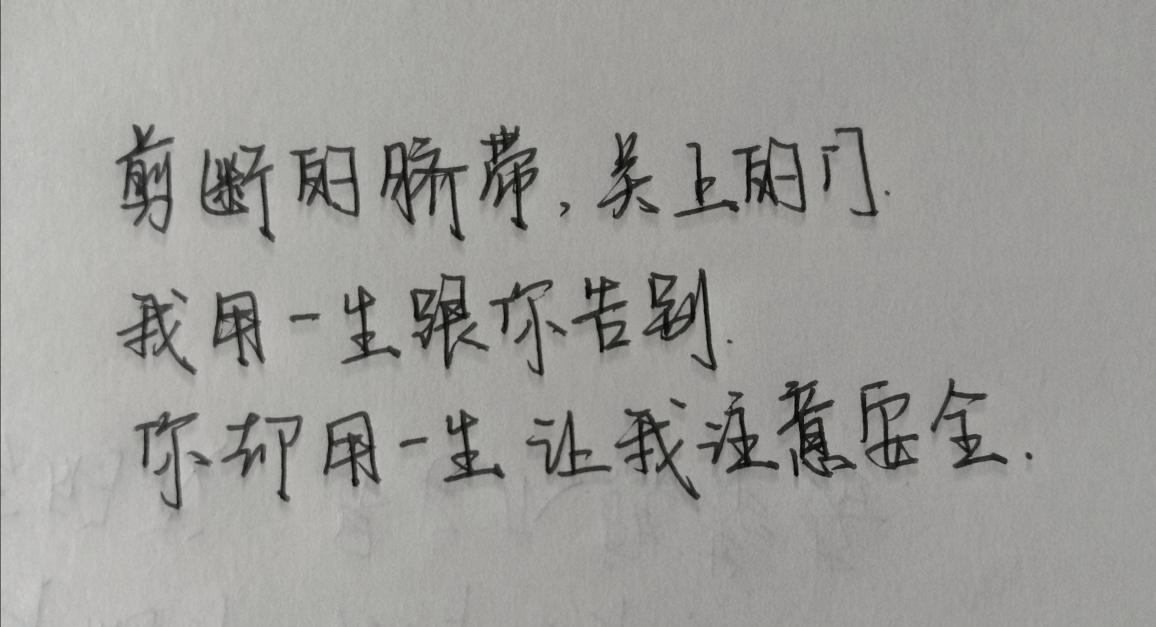 剪断的脐带,关上的门.
我用一生跟你告别.
你却用一生让我注意安全.